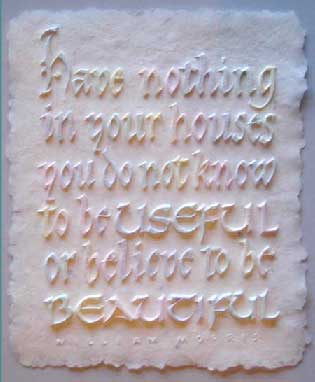 Have nothing
in your houses
you do not know
to be USEFUL
or believe to be
BEAUTIFUL
WILLIAM MORRIS